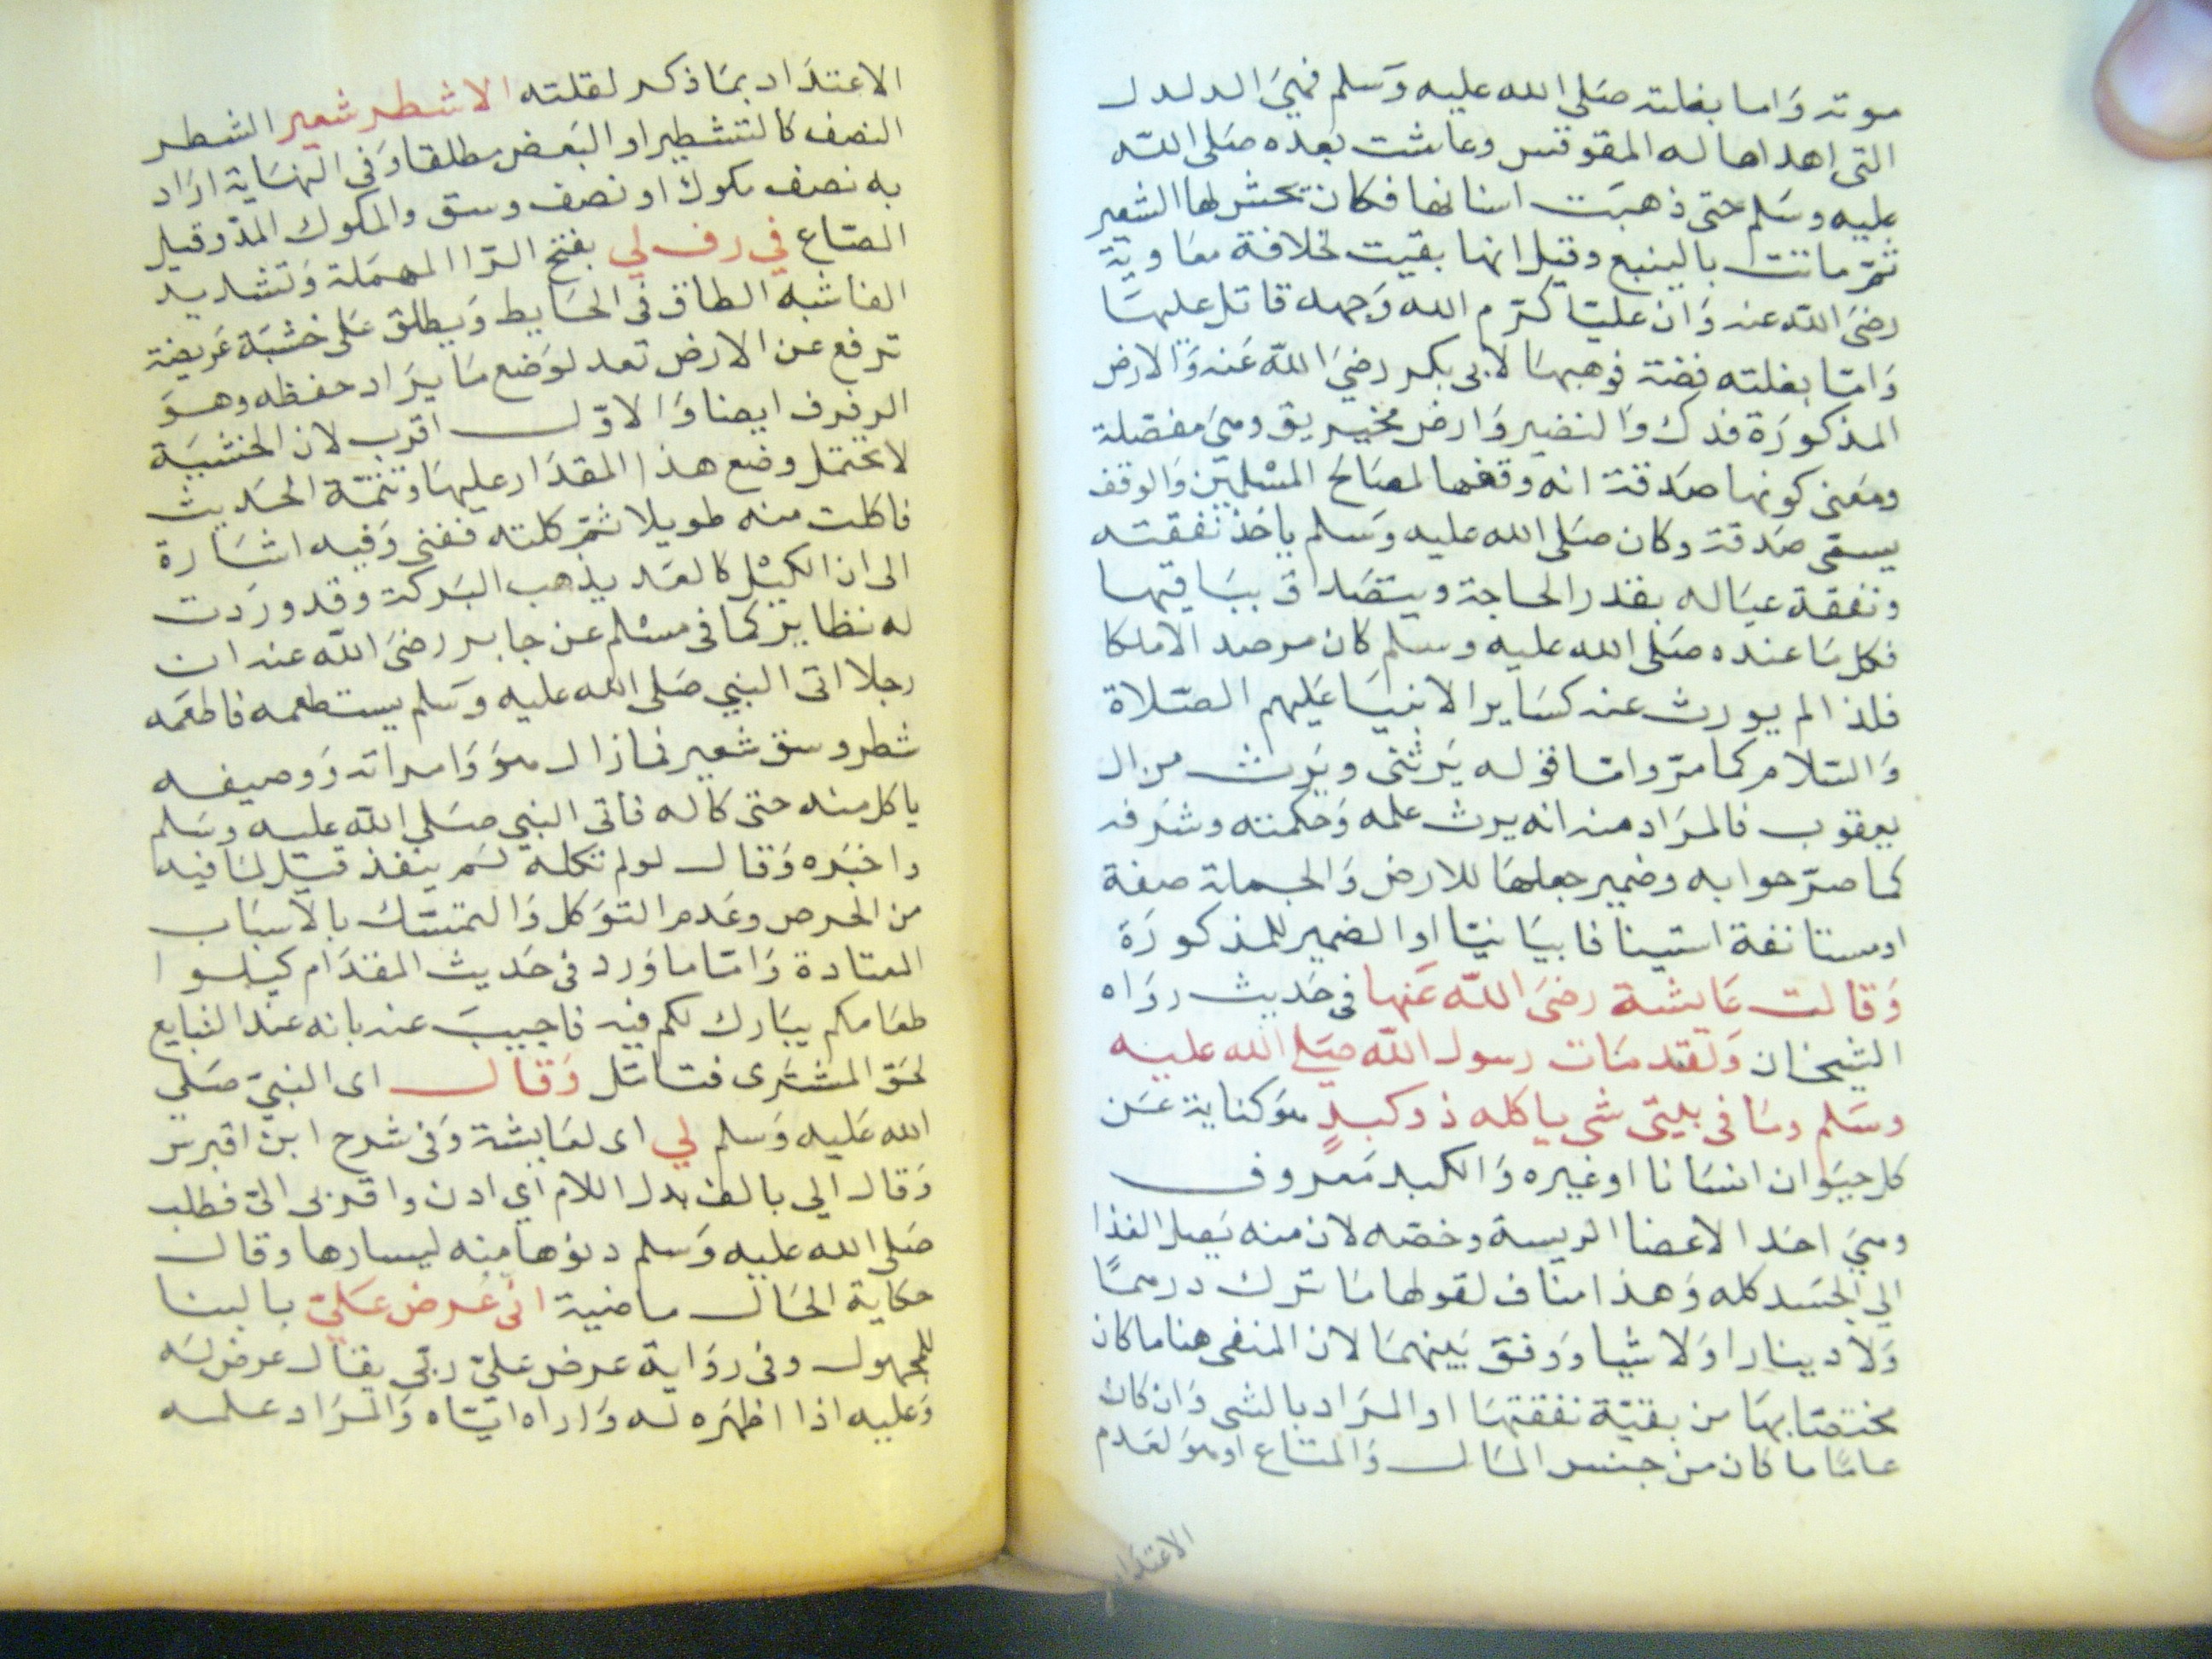 موته وَاما بغلته صَلى الله عليه وَسلم فهيَ الدلدل
التى اهداها له المقوقس وعاشت بعده صَلى اللّه
عليه وسَلم حتى ذهبَت اسنانها فكان يحش لها الشعير
ثمّ ماتت بالينبع وقيل انها بقيت لخلافة معَاوية
رضىَ اللّه عنه وَان عليّا كرّم الله وَجهه قاتل عليهَا
وَامّا بغلته فضة فوهبهَا لابى بكر رضيَ اللّه عَنه وَالارض
المذكورَة فدك وَالنضير وَارض مخيريق وهىَ مفصّلة
ومَعنى كونها صَدقة انه وقفها لمصَالح المسْلمِين وَالوقف
يسمى صَدقة وكان صَلى الله عليه وَسلم ياخذ نفقته
ونفقة عيَاله بقدر الحاجة ويتصَدق ببَاقيها
فكل مَا عنده صَلى الله عليه وسلم كان مرصد الا ملكا
فلذا لم يورث عنه كسَاير الانبيَا عَليهم الصّلاة
وَالسّلام كما مرّ وامّا قوله يَرثنى ويَرث من ال
يعقوب فالمرَاد منه انه يرث علمه وَحكمته وشرفه
كما صرّحوا به وضمير جعلهَا للارض وَالجملة صفة
او مستانفة استينافا بيَانيّا او الضمير للمذكورَة
وَقالت عَايشة رضىَ اللّه عَنها فى حَديث روَاه
الشيخان وَلقد مَات رسول اللّه صَلى الله عليه
وسَلم ومَا فى بيتى شى ياكله ذو كبدٍ هوَ كناية عَن
كل حيَوان انسَانا او غيره وَالكبد مَعروف
وهىَ احَد الاعضا الريسة وخصّه لان منه يَصل الغذا
الي الجسَد كله وَهذا مناف لقولها مَا ترك درهمًا
وَلا دينارا وَلا شيا وَوفق بَينهمَا لان المنفى هنا ما كان
مختصّا بهَا من بقيّة نفقتهَا او المرَاد بالشى وَان كان
عامّا ما كان من جنس المَال وَالمتَاع او هوَ لعَدم
الاعتدَاد
الاعتدَاد بمَا ذكر لقلته الا شطر شعير الشطر
النصف كالتشطير او البَعض مطلقا وَفى النهَاية ارَاد
به نصف مكوك او نصف وسق وَالمكوك المدّ وقيل
الصّاع في رف لي بفتح الرّا المهمَلة وَتشديد
الفا شبه الطاق فى الحَايط وَيطلق عَلى خشبَة عَريضة
ترفع عن الارض تعد لوَضع مَا يرَاد حفظه وهوَ
الرفرف ايضا وَالاوّل اقرب لان الخشبَة
لا تحتمل وضع هذا المقدَار عليهَا وتتمّة الحَديث
فاكلت منه طويلا ثمّ كلته ففنى وَفيه اشَارة
الى ان الكيْل كالعَد يذهب البَركة وقد ورَدت
له نظاير كما فى مسْلم عن جابر رضىَ اللّه عنه ان
رجلا اتى النبي صَلى الله عليه وَسلم يستطعمه فاطعَمه
شطر وسق شعير فما زال هوَ وَامراته وَوصيفه
ياكل منه حتى كَاله فاتى النبي صَلى اللّه عليه وسَلم
واخبَره وَقال لو لم تكله لم ينفذ قيل لمَا فيه
من الحرص وعَدم التوَكل وَالتمسّك بالاسبَاب
المعتادة وَامّا ما وَرد فى حَديث المقدَام كيلوا
طعَامكم يبَارك لكم فيه فاجيبَ عنه بانه عند التبايع
لحَق المشتَرى فتامّل وَقال اى النبيّ صَلى
الله عَليه وَسلم لي اى لعَايشة وَفى شرح ابن اقبرس
وَقال الي بالف بدل اللام اي ادن واقربى الىّ فطلب
صَلى الله عليه وَسلم دنوّها منه ليسارها وقال
حكاية الحَال ماضية انى عُرض عَلىّ بالبنا
للمجهول وفى روَاية عرض علىّ ربّى يقال عرضَ لَه
وَعليه اذا اظهَره له وَاراه ايّاه وَالمرَاد علمه